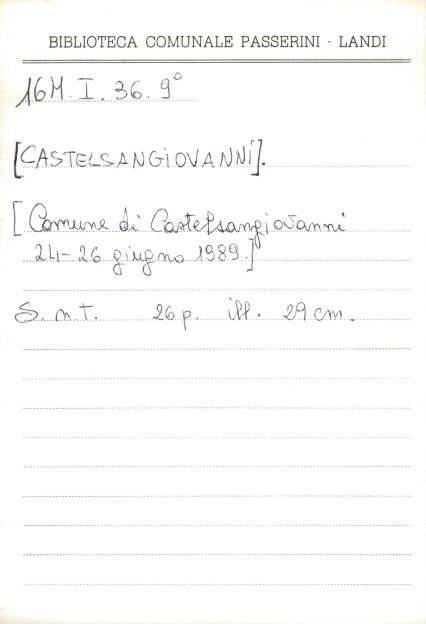 BIBLIOTECA COMUNALE PASSERINI - LANDI
16M. I. 36. 9°
[CASTELSANGIOVANNI].
[Comune di Castelsangiovanni
24-26 giugno 1989.]
S. n. t. 26 p. ill. 29 cm.